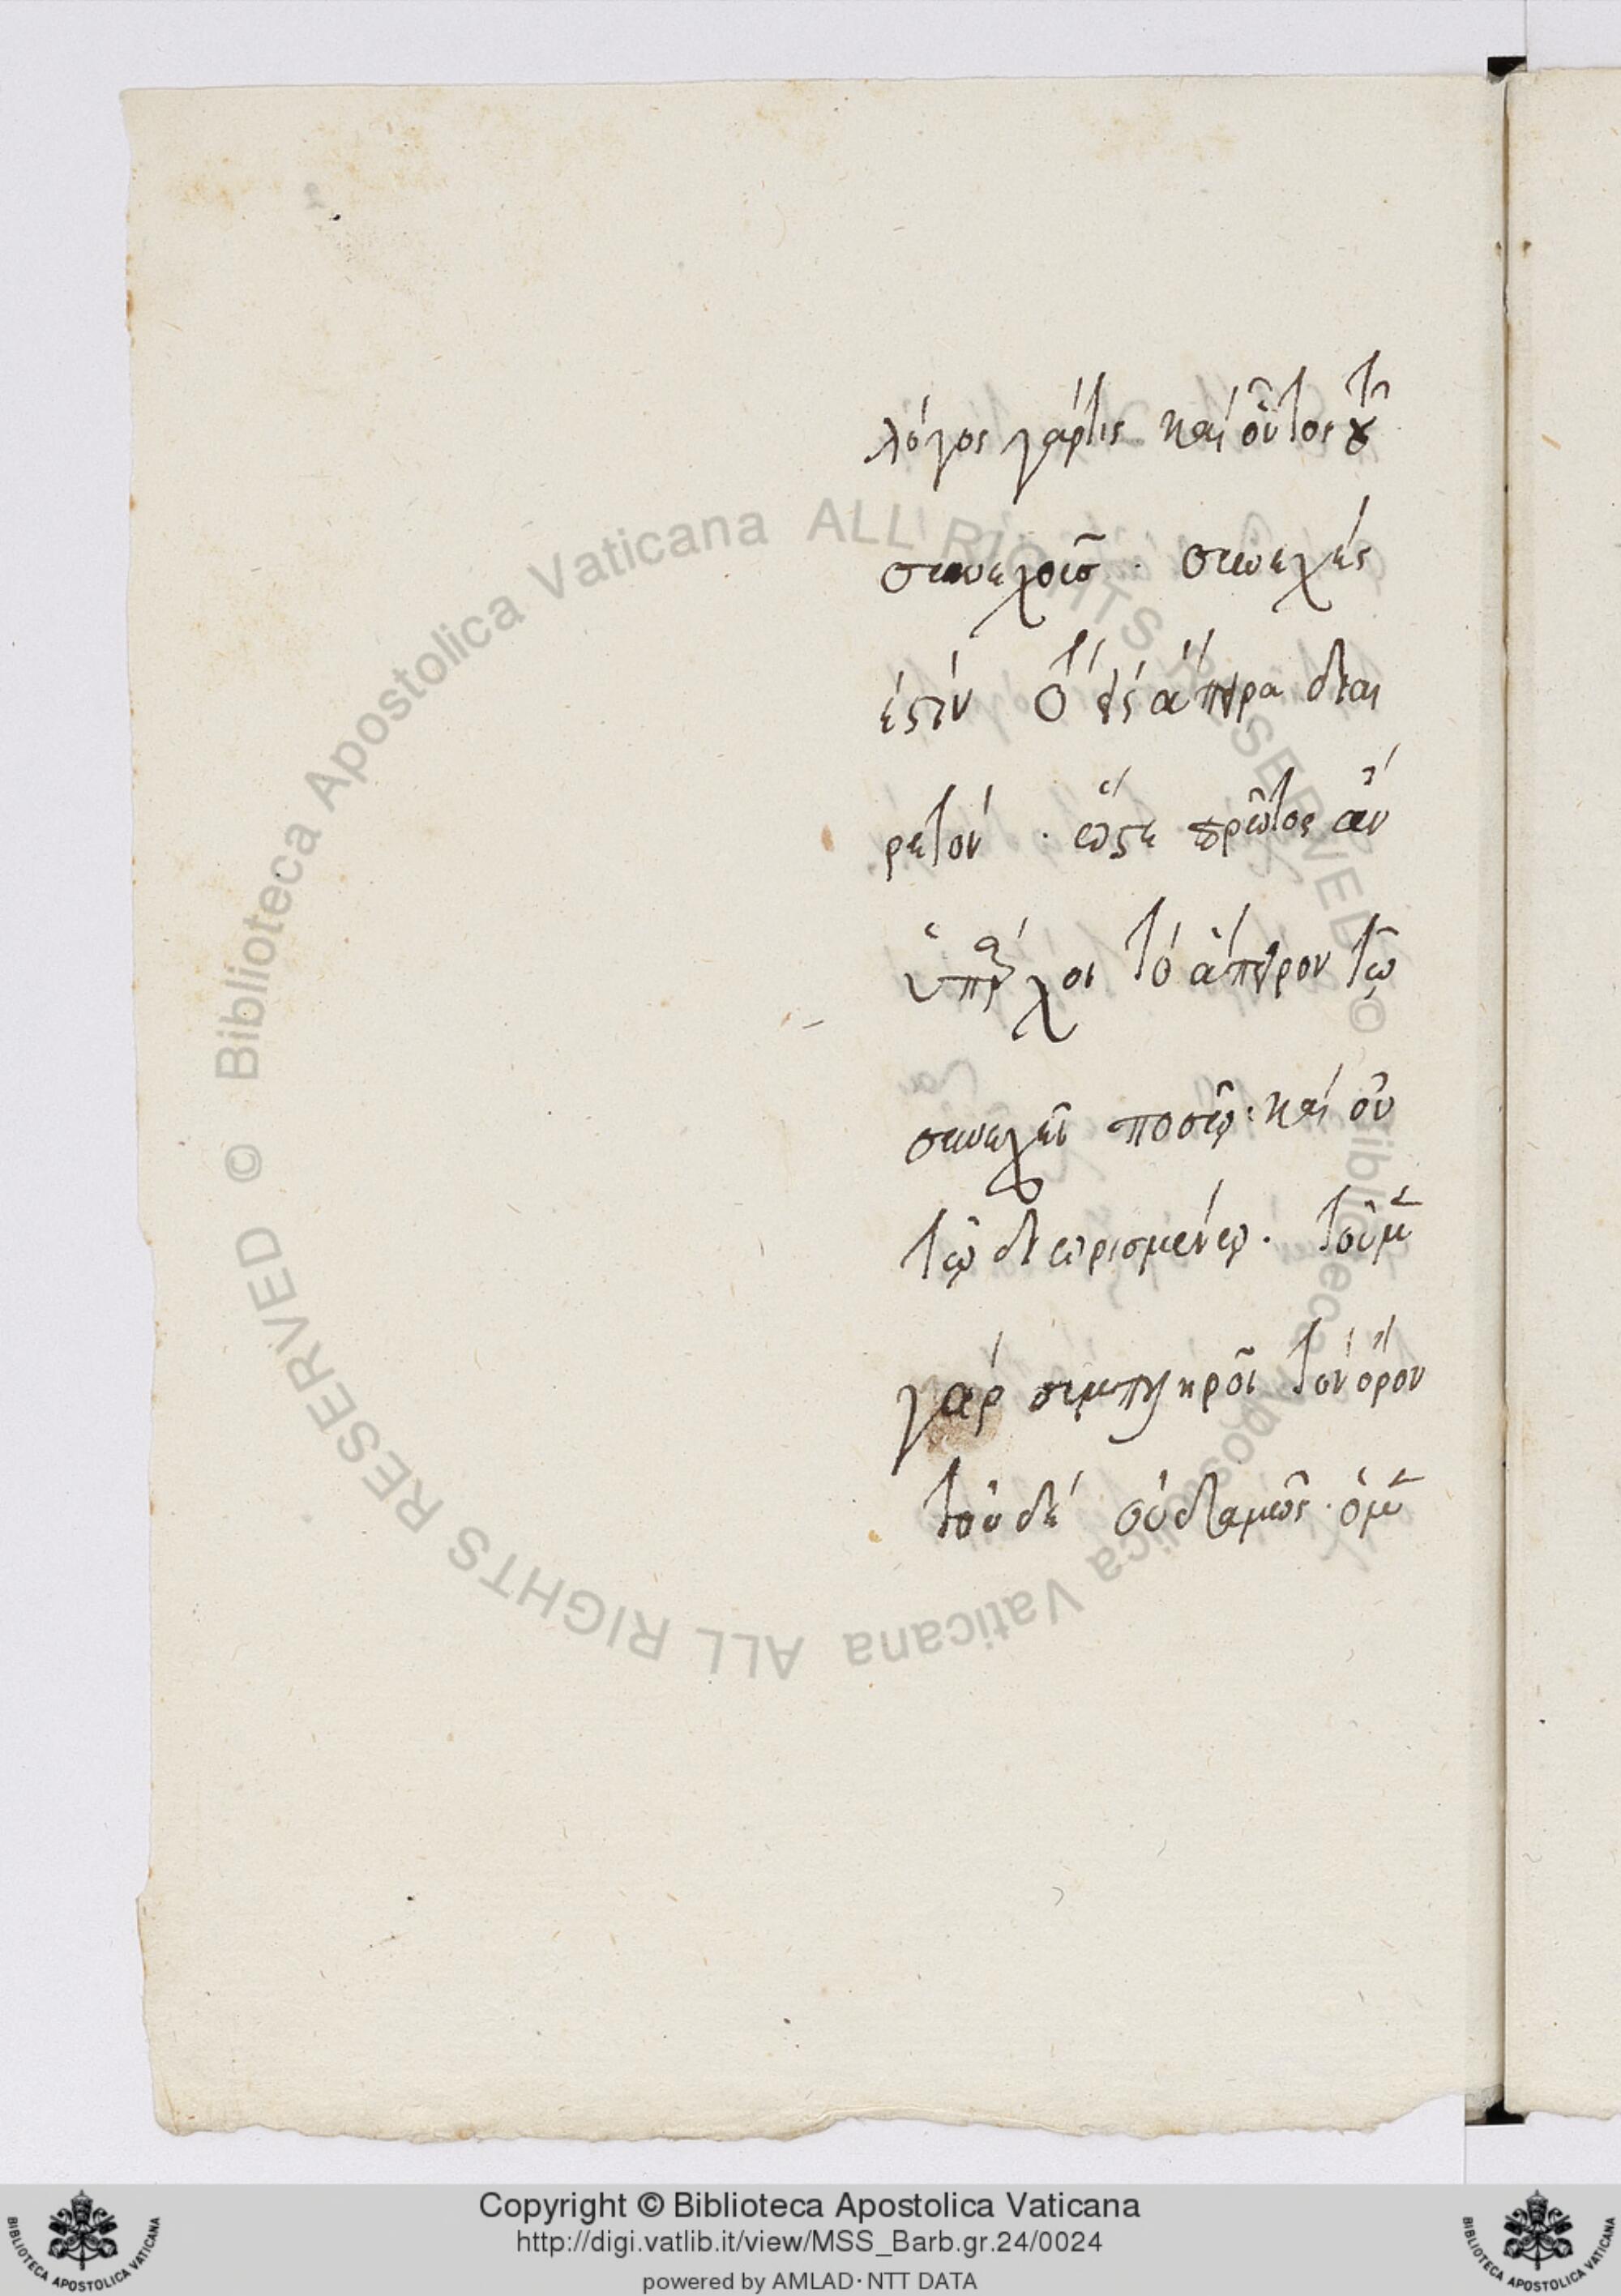 λόγος γάρ τις καὶ οὗτος τοῦ
συνεχοῦσ· συνεχὲς
ἐστὶν ὃ τὸ εἰς ἄπειρα διαι
ρετόν· ὥστε πρώτως ἂν
ὑπάρχοι τὸ ἄπειρον τῷ
συνεχεῖ ποσῷ· καὶ οὐ
τῷ διωρισμένῳ. τοῦ μὲν
γὰρ συμπληροῖ τὸν ὅρον
τοῦ δὲ οὐδαμῶς· ὁ μὲν
© Biblioteca Apostolica Vaticana ALL RIGHTS RESERVED © Biblioteca Apostolica Vaticana ALL RIGHTS RESERVED
Copyright © Biblioteca Apostolica Vaticana
http://digi.vatlib.it/view/MSS_Barb.gr.24/0024
powered by AMLAD·NTT DATA
BIBLIOTECA APOSTOLICA VATICANA
BIBLIOTECA APOSTOLICA VATICANA